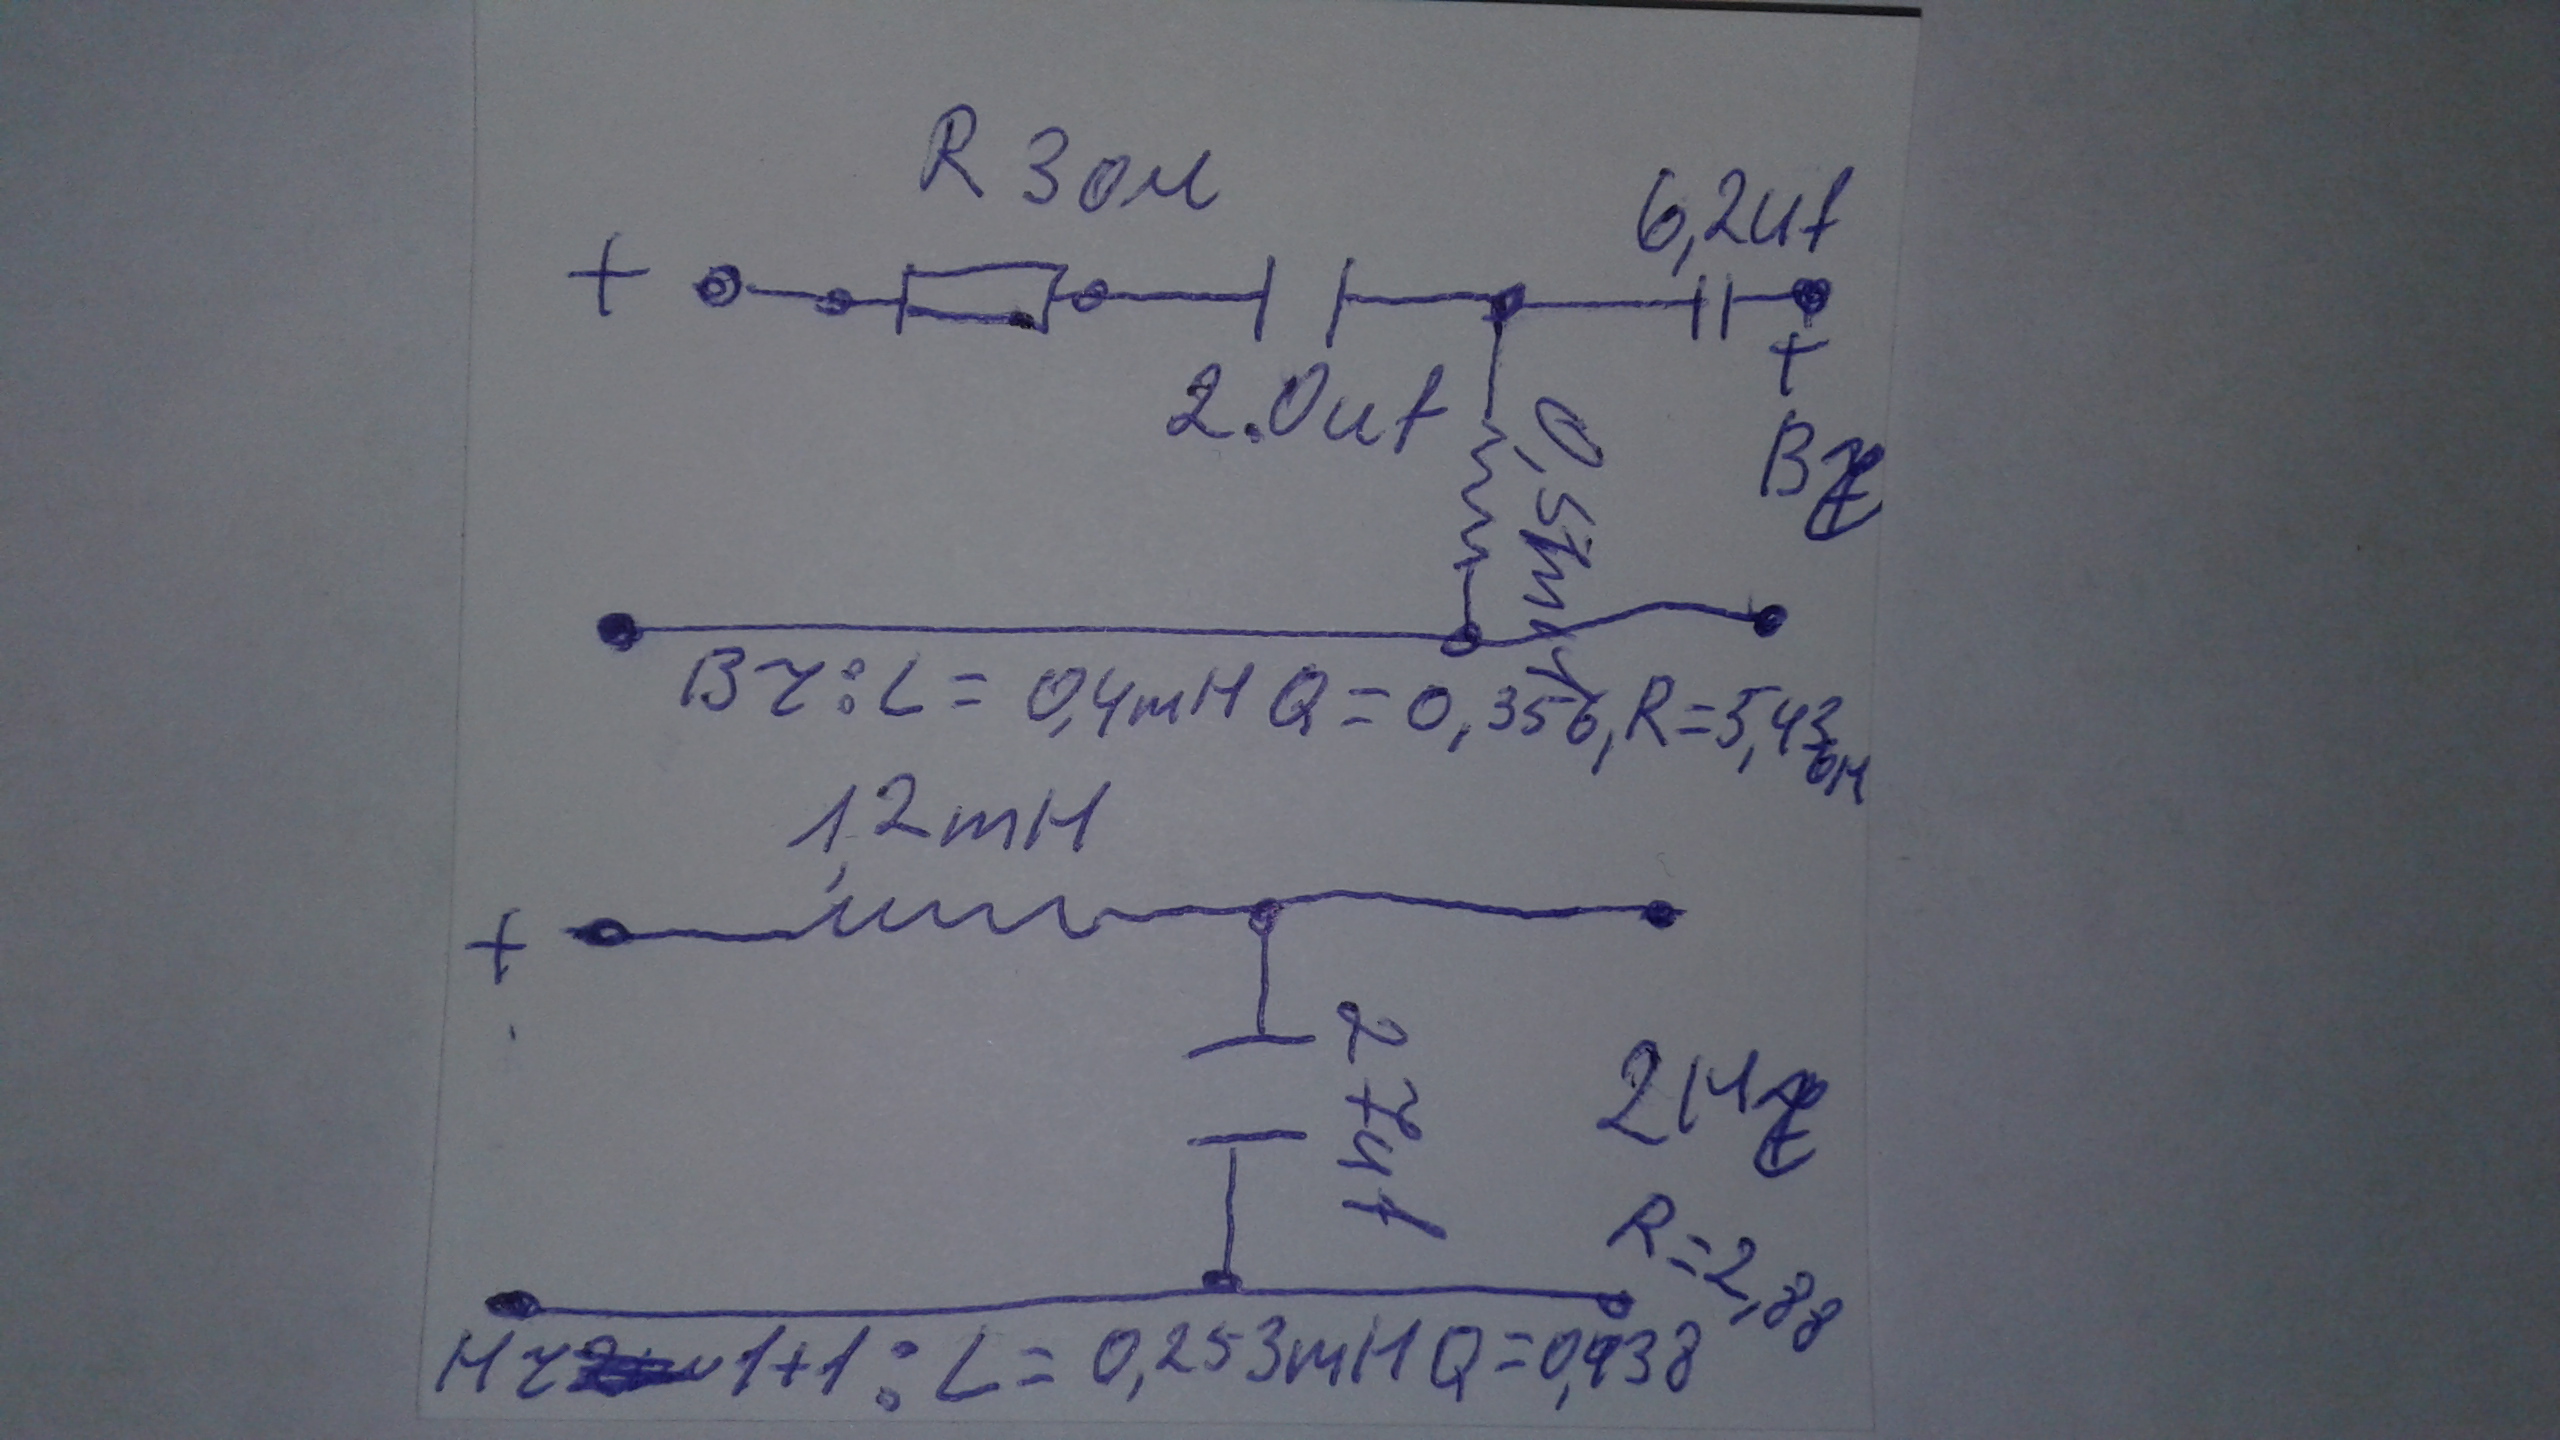 R 3 ом
+
6,2uf
2.0uf
+
ВЧ
Вч: L = 0,4mH Q = 0,356, R=5,43 ом
1,2mH
+
27uf
2НЧ
R=2,88
Нч 1+1 : L = 0,253mH Q=0,938